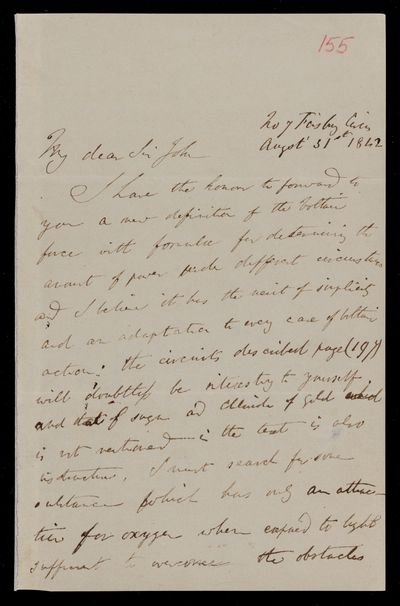 155
No 7 Finsbury Circus
Augst 31st 1842
My dear Sir John
I have the honour to forward to
you a new definition of the Voltaic
force with formulae for determining the
amount of power under different circumstances
and I believe it has the merit of simplicity
and an adaptation to every case of Voltaic
action: the circuits described page (197)
will doubtless be interesting to yourself
and that of sugar and Chloride of Gold
is not mentioned in the text is also
instructive. I must search for some
substance which has only an attrac-
tion for oxygen when exposed to light
sufficient to overcome the obstacles